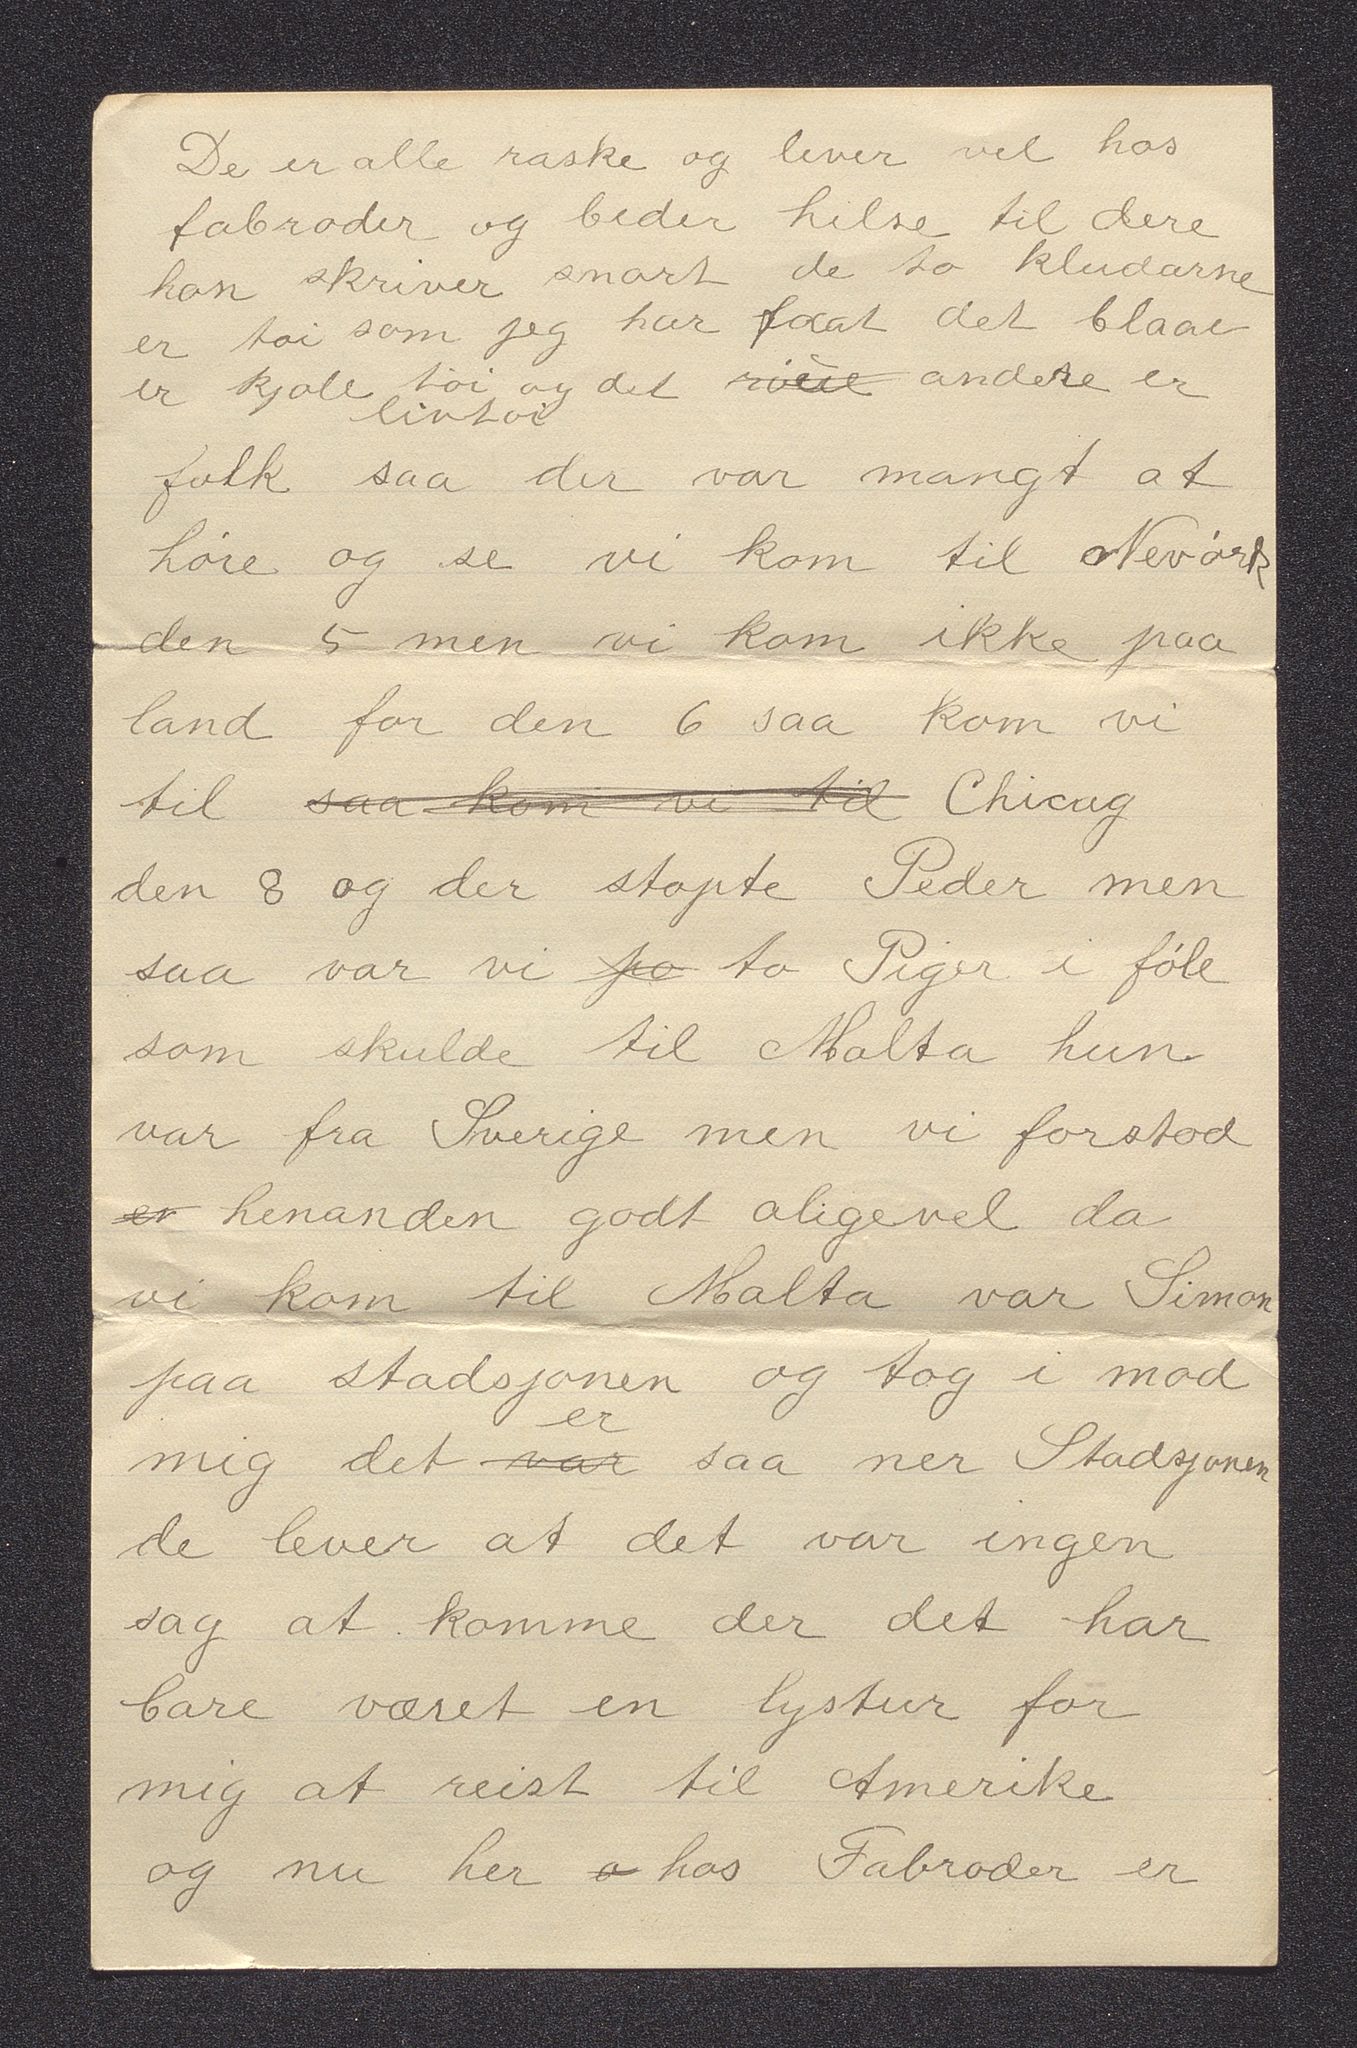 De er alle raske og lever vel hos
fabroder og beder hilse til dere
han skriver snart de to kludarne
er töi som jeg har faat det blaae
er kjole töi og det andere er
livtöi
folk saa der var mangt at
höre og se vi kom til Nevörk
den 5 men vi kom ikke paa
land for den 6 saa kom vi
til saa kom vi til Chicag
den 8 og der stopte Peder men
saa var vi po to Piger i föle
som skulde til Malta hun
var fra Sverige men vi forstod
er henanden godt aligevel da
vi kom til Malta var Simon
paa stadsjonen og tog i mod
er
mig det var saa ner Stadsjonen
de lever at det var ingen
sag at komme der det har
bare været en lystur for
mig at reist til Amerike
og nu her o hos Fabroder er